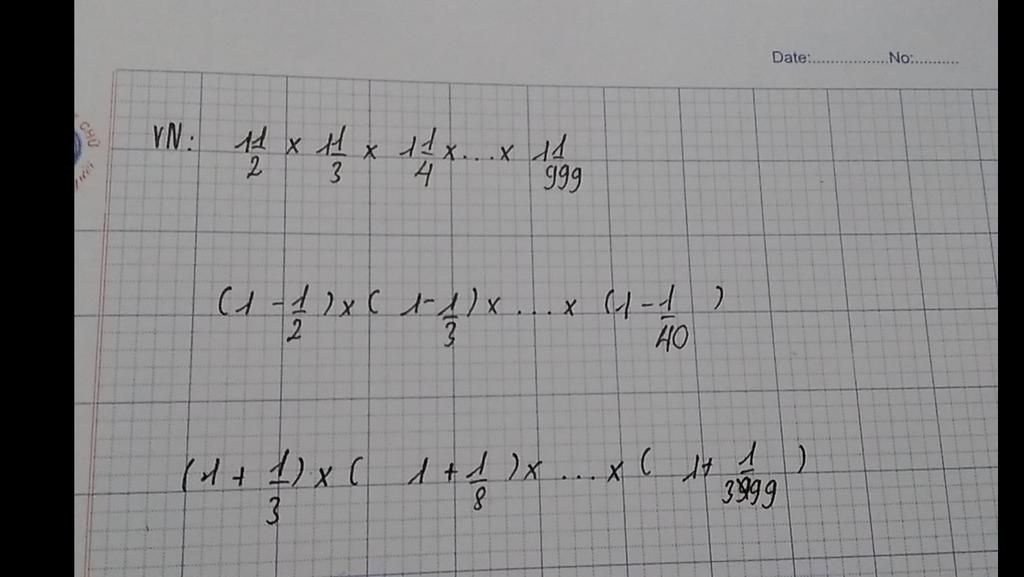 Date:.................No:..........
VN: 1 1/2 x 1 1/3 x 1 1/4 x...x 1 1/999
(1 - 1/2) x ( 1 - 1/3) x ... x (1 - 1/40 )
(1 + 1/3) x ( 1 + 1/8 ) x ... x ( 1 + 1/3999 )